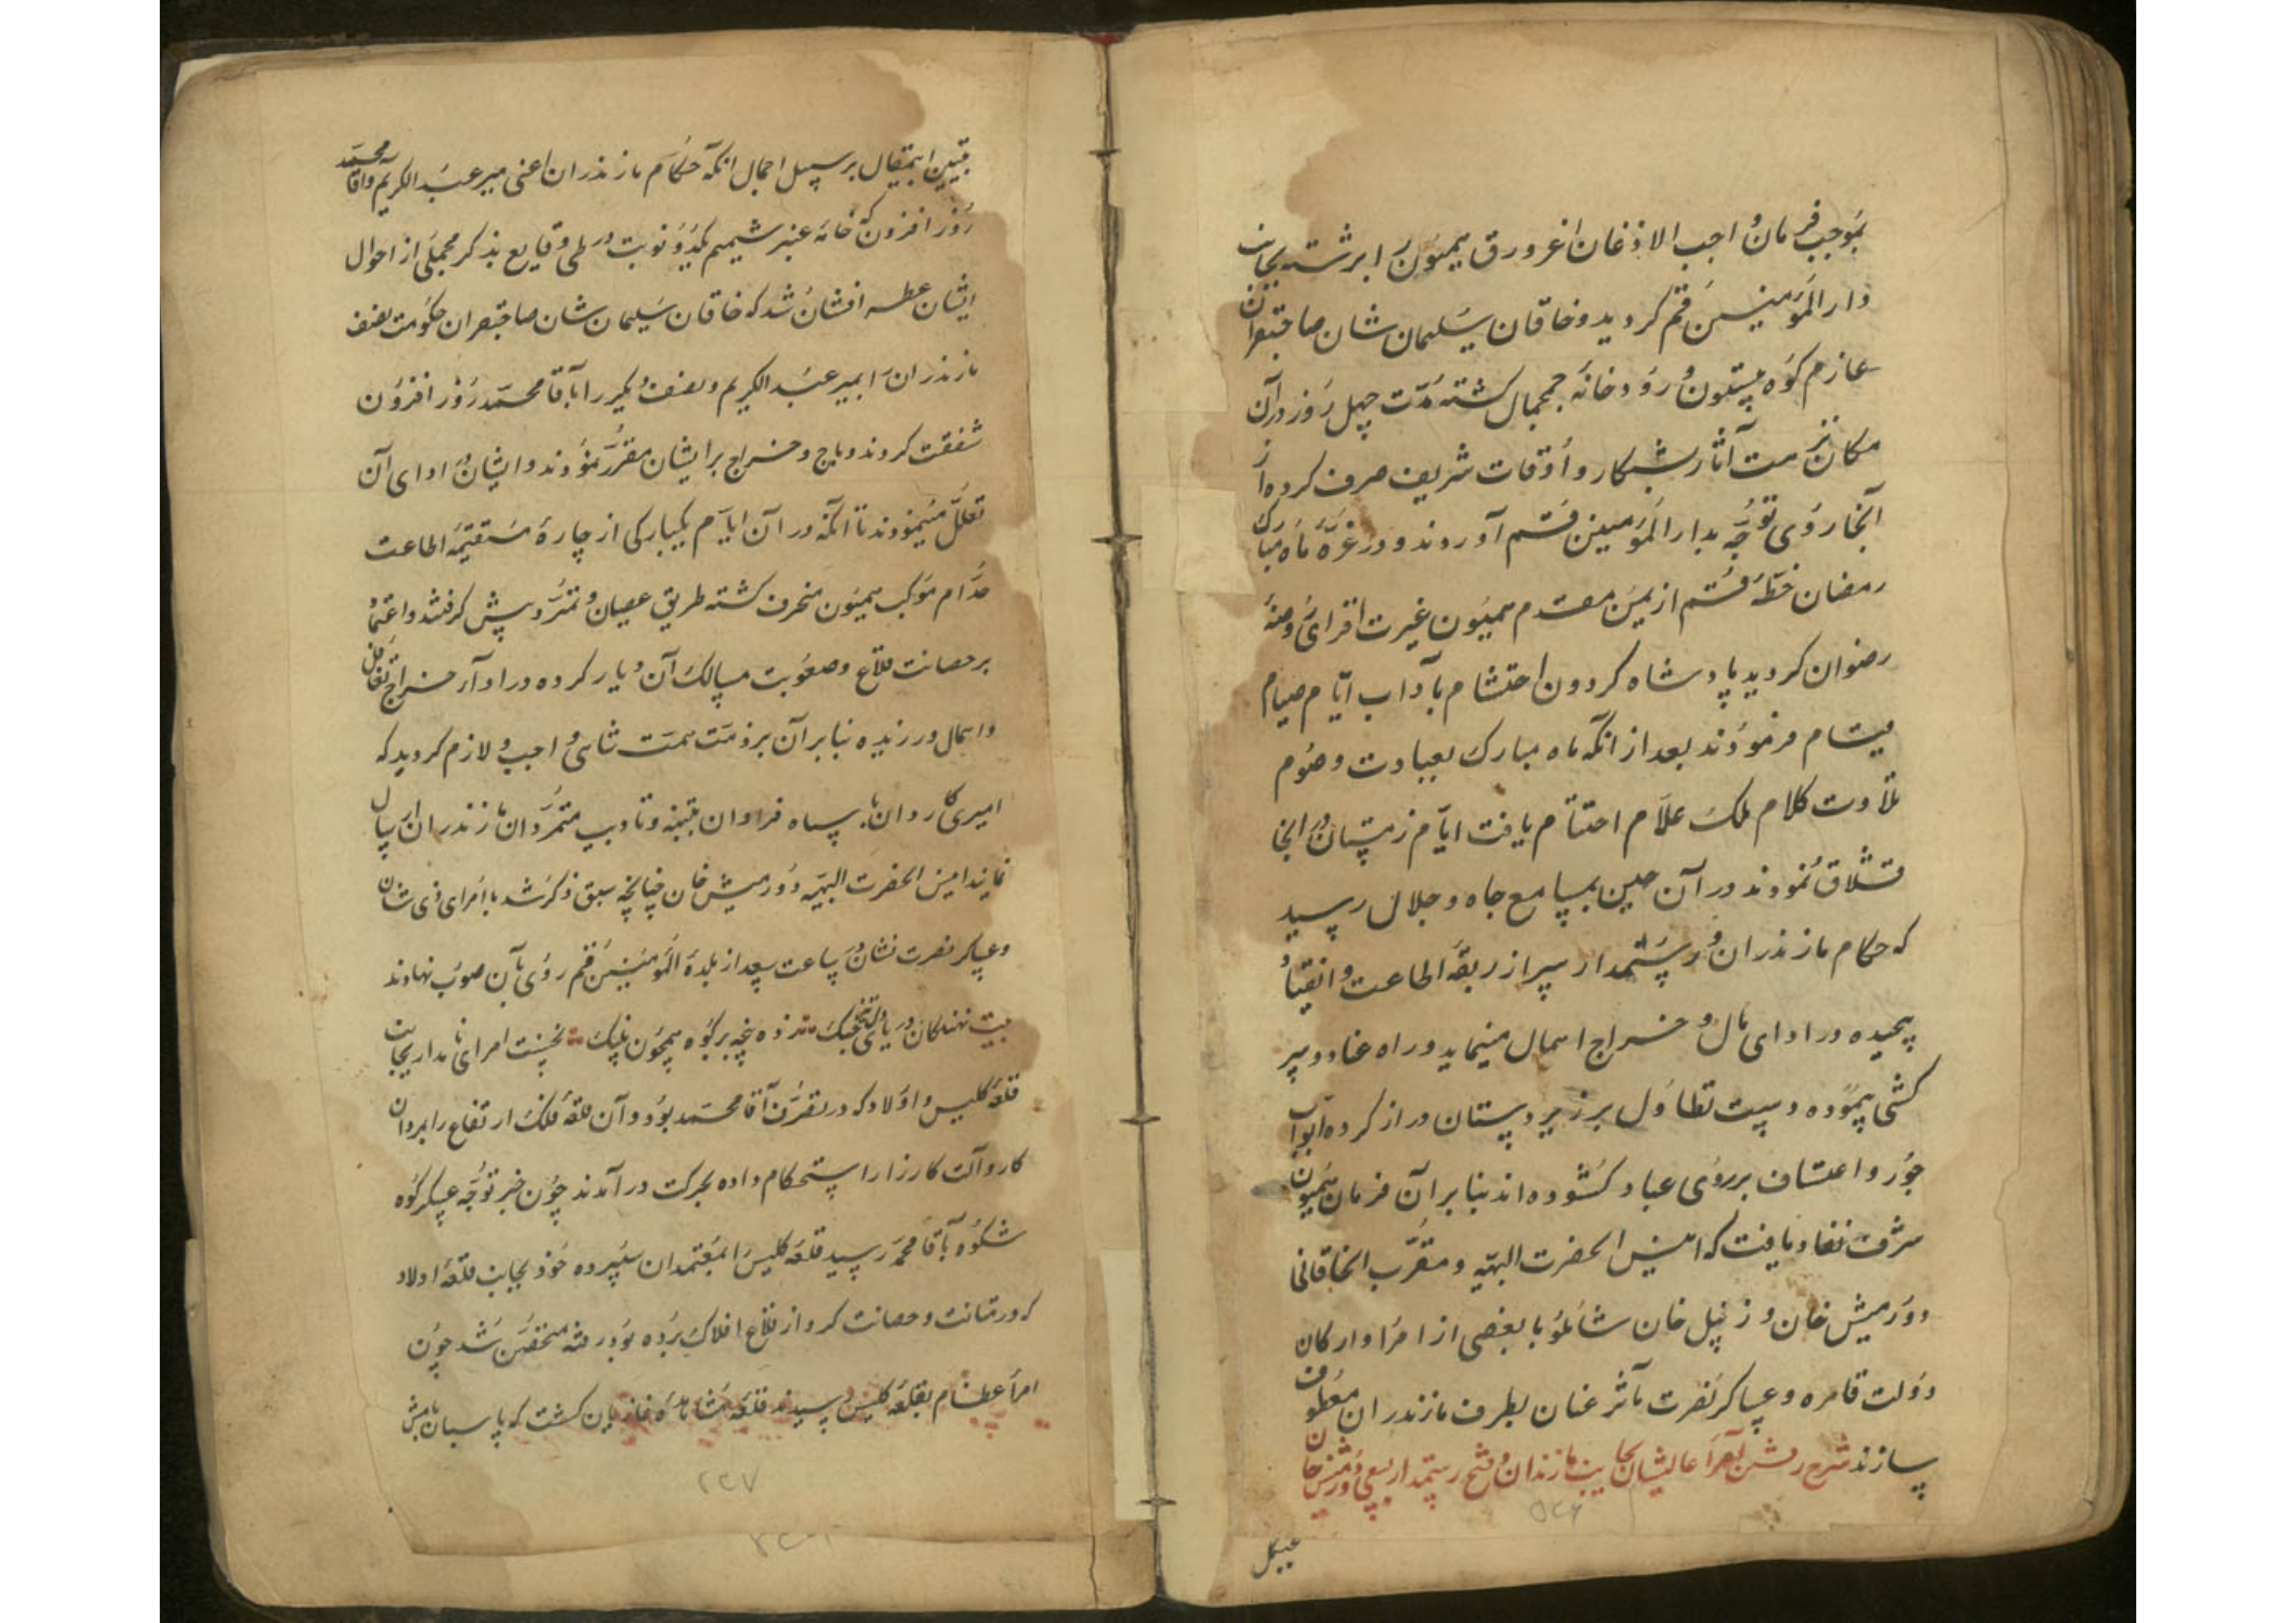 بموجب فرمان واجب الاذعان اغرورق همیون را برشته بجانب
دار المؤمنین قم کردید و خاقان سلیمان شان صاحبقران
عازم کوه بیستون و رودخانه جمجمال کشته مدت چهل روز در آن
مکان نزهت آثار بشکار و اوقات شریف صرف کرده از
آنجا روی توجه بدار المؤمنین قم آوردند و در غره ماه مبارک
رمضان خطه قم از یمن مقدم همیون غیرت افزای روضه
رضوان کردید پادشاه کردون احتشام بآداب ایام صیام
قیام فرمودند بعد از انکه ماه مبارک بعبادت و صوم
تلاوت کلام ملک علام اختتام یافت ایام زمستان در انجا
قشلاق نمودند در آن حین بمسامع جاه و جلال رسید
که حکام مازندران و رستمدار سر از ربقه اطاعت و انقیاد
پیچیده در ادای مال و خراج اهمال مینماید و راه عناد و سر
کشی پیموده دست تطاول بر زیر دستان دراز کرده ابواب
جور و اعتساف بر روی عباد کشوده اند بنا بر آن فرمان همیون
شرف نفاذ یافت که امین الحضرت البهیه و مقرب الخاقانی
دورمیش خان و زینل خان شاملو با بعضی از امرا و ارکان
دولت قاهره و عساکر نصرت مآثر عنان بطرف مازندران معطوف
سازند شرح رفتن امرا عالیشان بجانب مازندران و فتح رستمدار بسعی دورمیش خان
تبیین اینمقال بر سبیل اجمال انکه حکام مازندران اعنی میر عبد الکریم و آقا محمد
روز افزون که خامه عنبر شمیم یکدو نوبت در طی وقایع بذکر مجملی از احوال
ایشان عطسه افشان شد که خاقان سلیمان شان صاحبقران حکومت نصف
مازندران را بمیر عبد الکریم و نصف دیگر را بآقا محمد روز افزون
شفقت کردند و باج و خراج بر ایشان مقرر نمودند و ایشان در ادای آن
تعلل مینمودند تا آنکه در آن ایام یکبارکی از جاده مستقیمه اطاعت
خدام موکب همیون منحرف کشته طریق عصیان و تمرد پیش کرفتند و اعتماد
بر حصانت قلاع و صعوبت مسالک آن دیار کرده در اداء خراج تغافل
و اهمال ورزیده بنا بر آن بر ذمت همت شاهی واجب و لازم کردید که
امیری کاردان با سپاه فراوان بتنبیه و تادیب متمردان مازندران ارسال
نمایند امین الحضرت البهیه دورمیش خان چنانچه سبق ذکر شد با امرای ذی شان
و عساکر نصرت نشان در ساعت سعد از بلده المؤمنین قم روی بآن صوب نهادند
بیت نهنکان دریای جنک زده پنجه بر کوه همچون پلنک نخست امرای نامدار بجانب
قلعه کلیس و اولاد که در تصرف آقا محمد بود و آن قلعه فلک ارتفاع را بمردان
کار و آلت کارزار استحکام داده بحرکت در آمدند چون خبر توجه عساکر کوه
شکوه بآقا محمد رسید قلعه کلیس را بمعتمدان سپرده خود بجانب قلعه اولاد
که در متانت و حصانت کرو از قلاع افلاک برده بود رفته متحصن شد چون
امرا عظام بقلعه کلیس رسیدند قلعه مشاهده غازیان کشت که پاسبان بامش